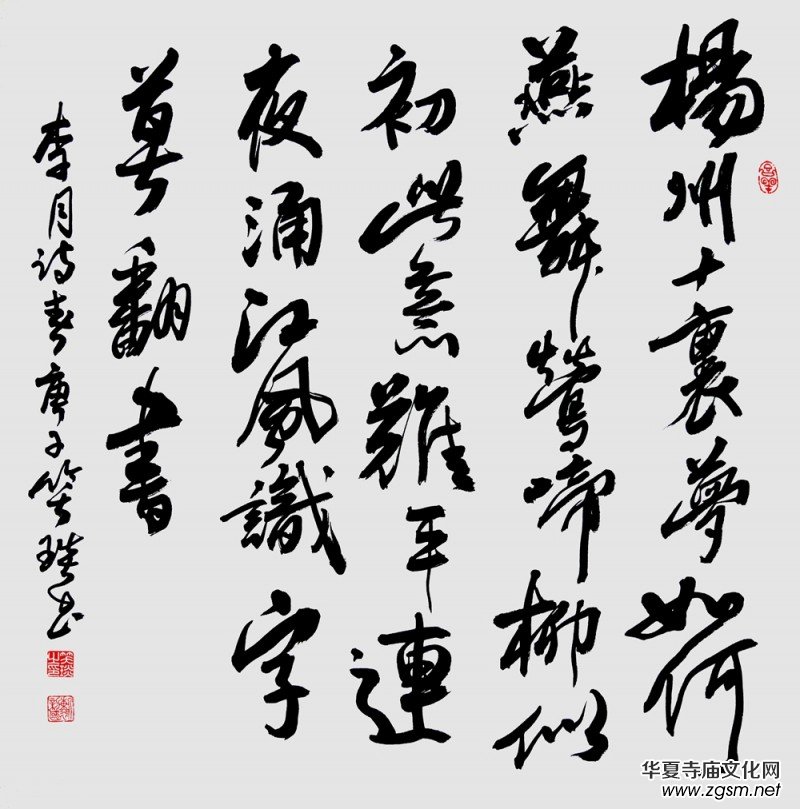 楊州十裏夢如何
燕舞鶯啼柳似
初此意難平連
夜涌江風識字
莫翻書
李月诗春庚子笑书
华夏寺庙文化网
www.zgsm.net